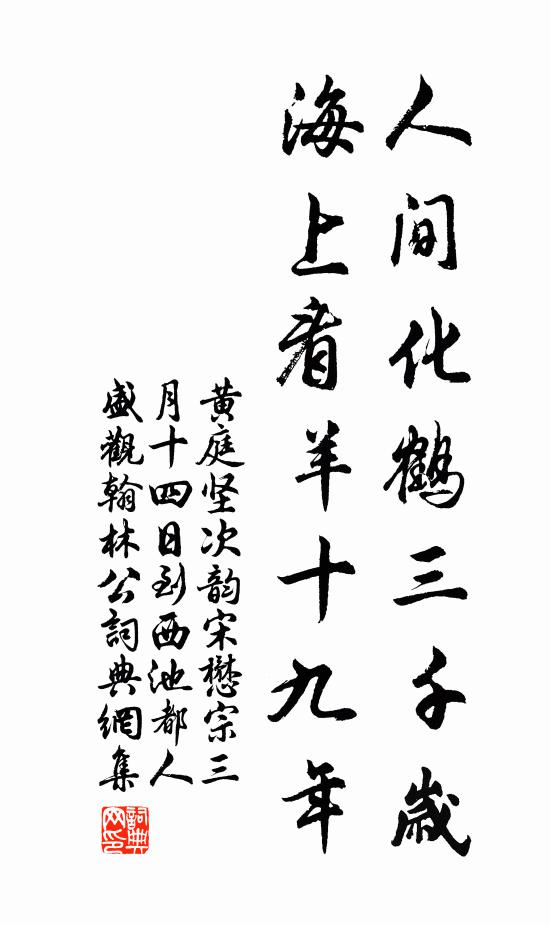 人间化鹤三千歲
海上看羊十九年
黄庭坚次韵宋懋宗三
月十四日到西池都人
盛觀翰林公詞典網集
詞典网印